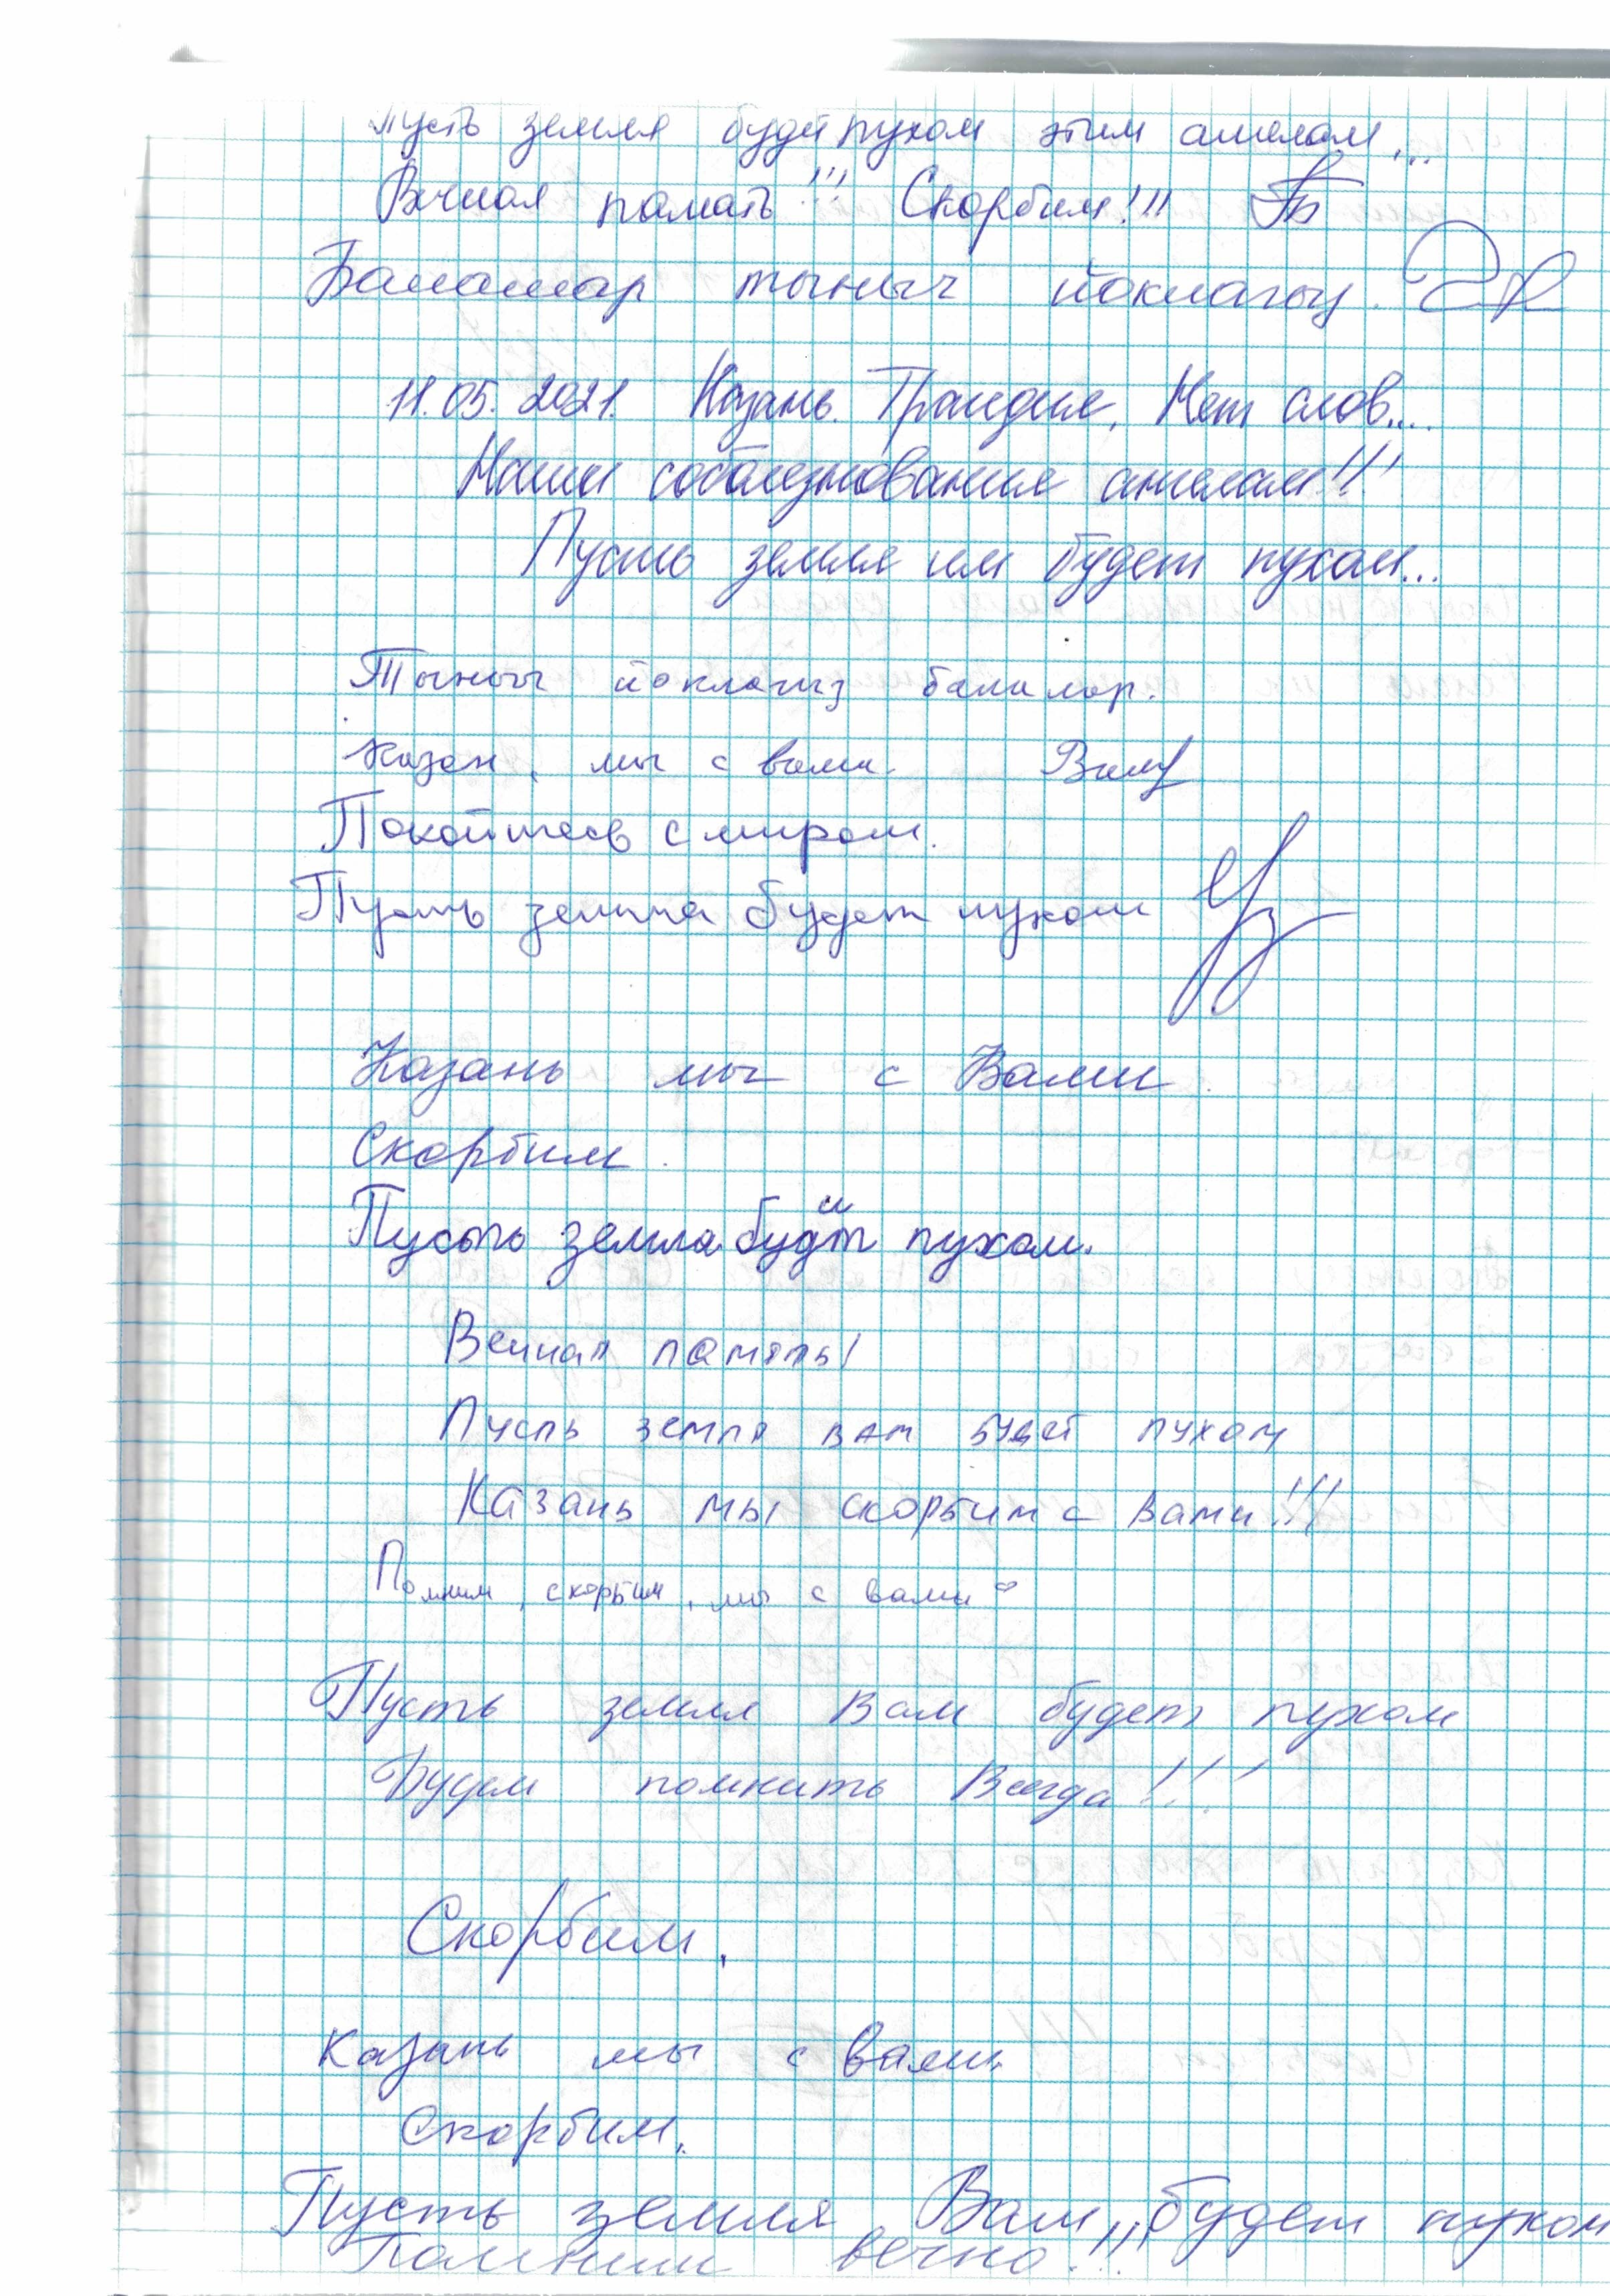 Пусть земля будет пухом этим ангелам...
Вечная память!!! Скорбим!!!
Балалар тыныч йоклагыз.
11.05.2021. Казань. Трагедия. Нет слов....
Наши соболезнования ангелам!!!
Пусть земля им будет пухом...
Тыныч йоклагыз балалар.
Казан, мы с вами.
Покойтесь с миром.
Пусть земля будет пухом
Казань мы с Вами.
Скорбим.
Пусть земля будет пухом.
Вечная память!
Пусть земля вам будет пухом
Казань мы скорбим с вами!!!
Помним, скорбим, мы с вами
Пусть земля Вам будет пухом
Будем помнить Всегда!!!
Скорбим.
Казань мы с вами.
Скорбим.
Пусть земля Вам будет пухом
Помним вечно!!!